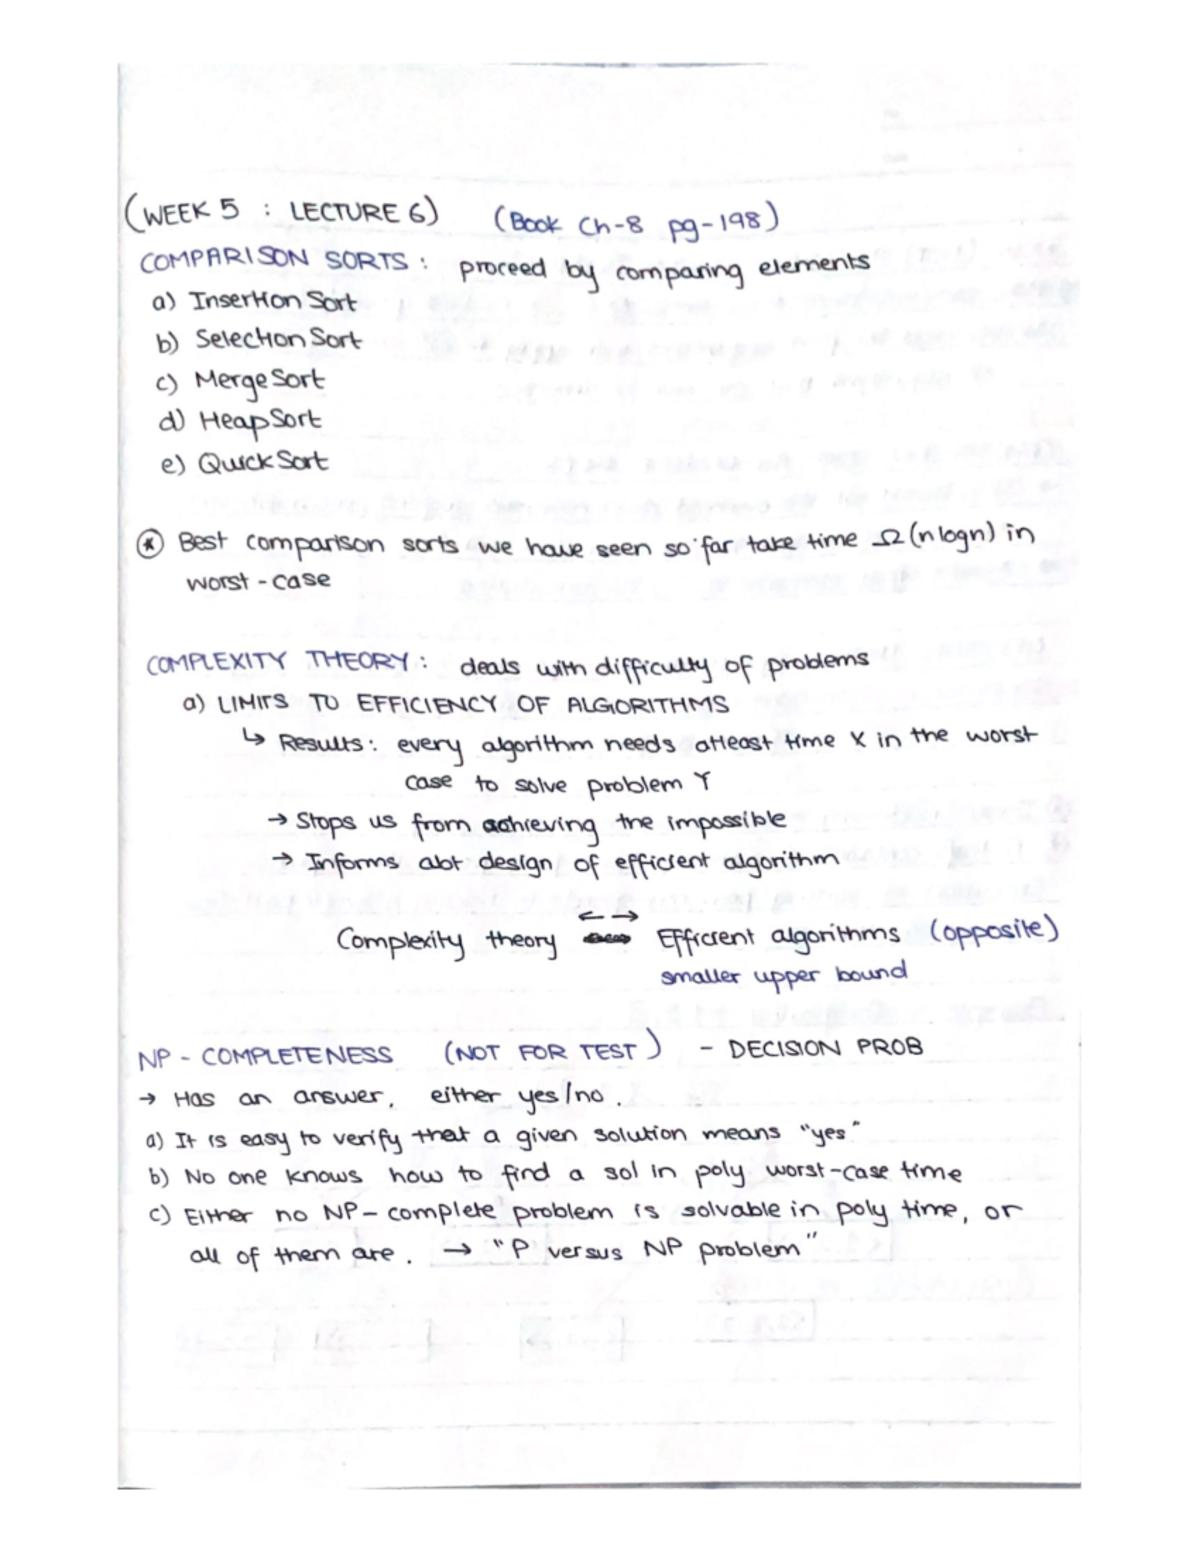 (WEEK 5 : LECTURE 6) (Book Ch-8 pg-198)
COMPARISON SORTS : proceed by comparing elements
a) Insertion Sort
b) Selection Sort
c) Merge Sort
d) Heap Sort
e) Quick Sort
* Best comparison sorts we have seen so far take time Ω(n logn) in
worst-case
COMPLEXITY THEORY : deals with difficulty of problems
a) LIMITS TO EFFICIENCY OF ALGORITHMS
↳ Results : every algorithm needs atleast time X in the worst
case to solve problem Y
→ Stops us from achieving the impossible
→ Informs abt design of efficient algorithm
Complexity theory ← → Efficient algorithms (opposite)
smaller upper bound
NP - COMPLETENESS (NOT FOR TEST) - DECISION PROB
→ Has an answer, either yes/no.
a) It is easy to verify that a given solution means "yes"
b) No one knows how to find a sol in poly worst-case time
c) Either no NP-complete problem is solvable in poly time, or
all of them are. → "P versus NP problem"